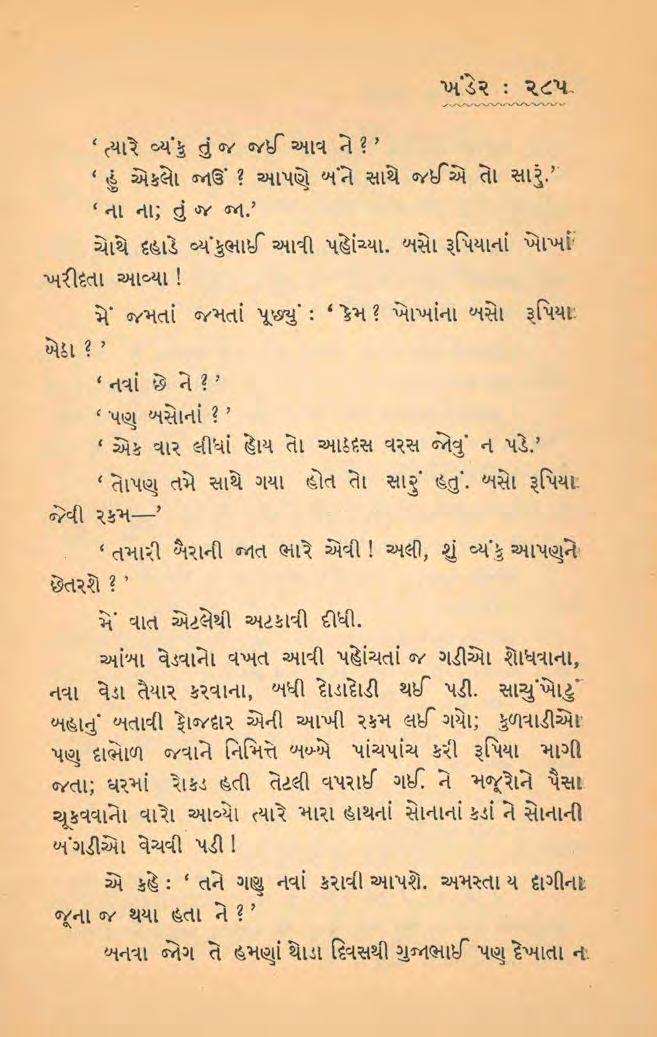 ખંડેર : ૨૮૫
‘ ત્યારે વ્યંકુ તું જ જઈ આવ ને ? ’
‘ હું એકલો જાઉં ? આપણે બંને સાથે જઈએ તો સારું.’
‘ ના ના; તું જ જા.’
ચોથે દહાડે વ્યંકુભાઈ આવી પહોંચ્યા. બસો રૂપિયાનાં ખોખાં
ખરીદતા આવ્યા !
મેં જમતાં જમતાં પૂછ્યું : ‘ કેમ ? ખોખાંના બસો રૂપિયા
બેઠા ? ’
‘ નવાં છે ને ? ’
‘ પણ બસોનાં ? ’
‘ એક વાર લીધાં હોય તો આઠદસ વરસ જોવું ન પડે.’
‘ તોપણ તમે સાથે ગયા હોત તો સારું હતું. બસો રૂપિયા
જેવી રકમ—’
‘ તમારી બૈરાની જાત ભારે એવી ! અલી, શું વ્યંકુ આપણને
છેતરશે ? ’
મેં વાત એટલેથી અટકાવી દીધી.
આંબા વેડવાનો વખત આવી પહોંચતાં જ ગડીઓ શોધવાના,
નવા વેડા તૈયાર કરવાના, બધી દોડાદોડી થઈ પડી. સાચુંખોટું
બહાનું બતાવી ફોજદાર એની આખી રકમ લઈ ગયો; કુળવાડીઓ
પણ દાભોળ જવાને નિમિત્તે બબ્બે પાંચપાંચ કરી રૂપિયા માગી
જતા; ઘરમાં રોકડ હતી તેટલી વપરાઈ ગઈ. ને મજૂરોને પૈસા
ચૂકવવાનો વારો આવ્યો ત્યારે મારા હાથનાં સોનાનાં કડાં ને સોનાની
બંગડીઓ વેચવી પડી !
એ કહે : ‘ તને ગણુ નવાં કરાવી આપશે. અમસ્તા ય દાગીના
જૂના જ થયા હતા ને ? ’
બનવા જોગ તે હમણાં થોડા દિવસથી ગુજાભાઈ પણ દેખાતા ન